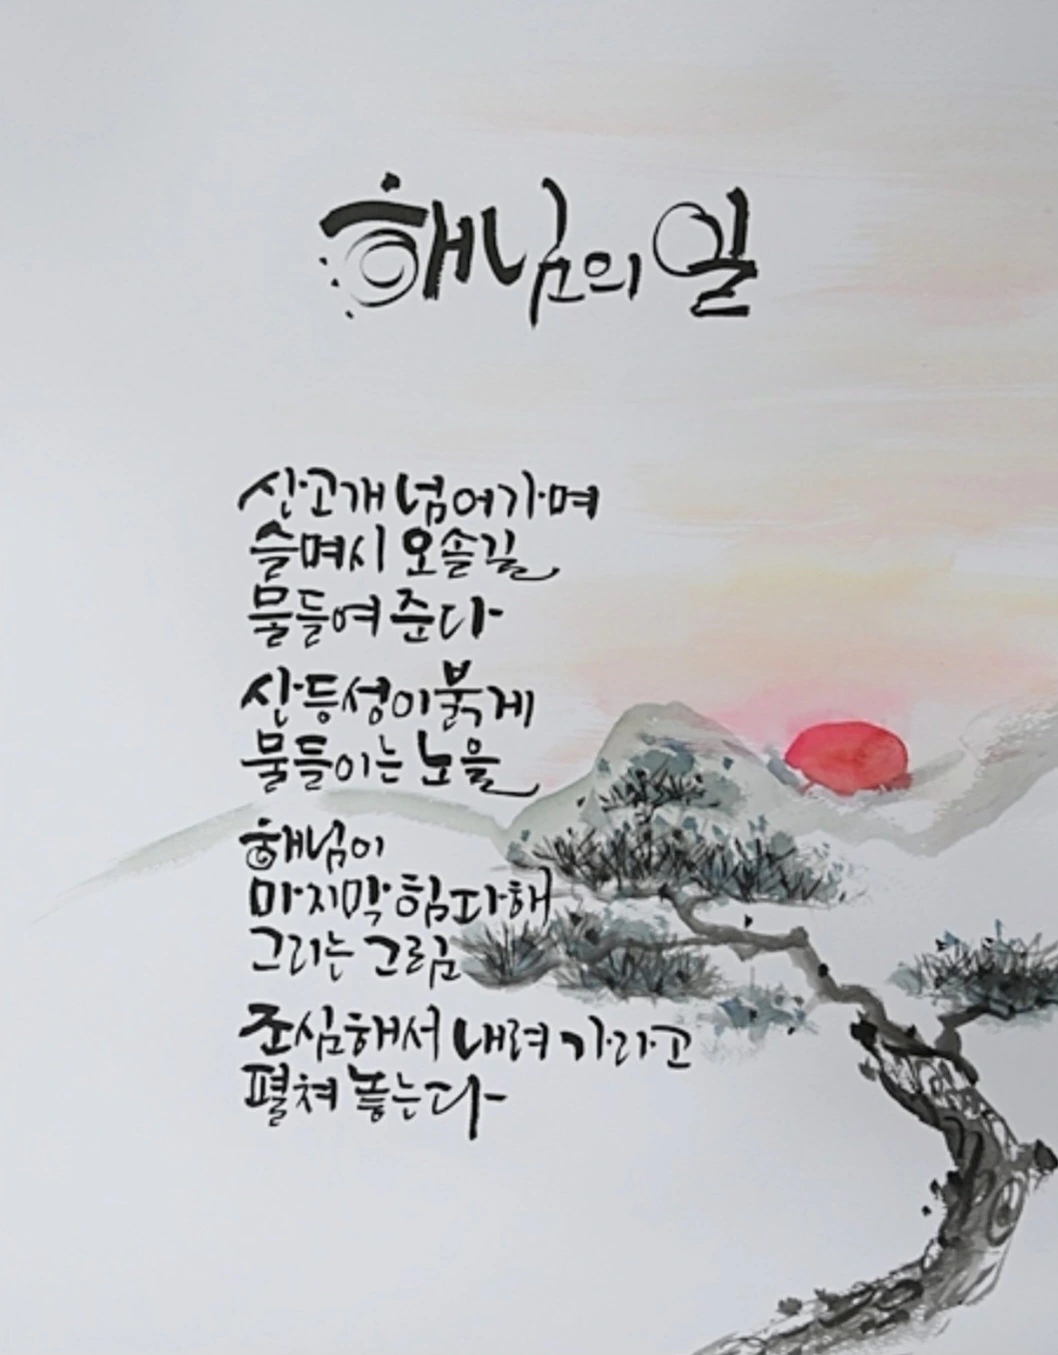 해님의 일
산고개 넘어가며
슬며시 오솔길
물들여 준다
산등성이 붉게
물들이는 노을
해님이
마지막 힘 다해
그리는 그림
조심해서 내려 가라고
펼쳐 놓는다